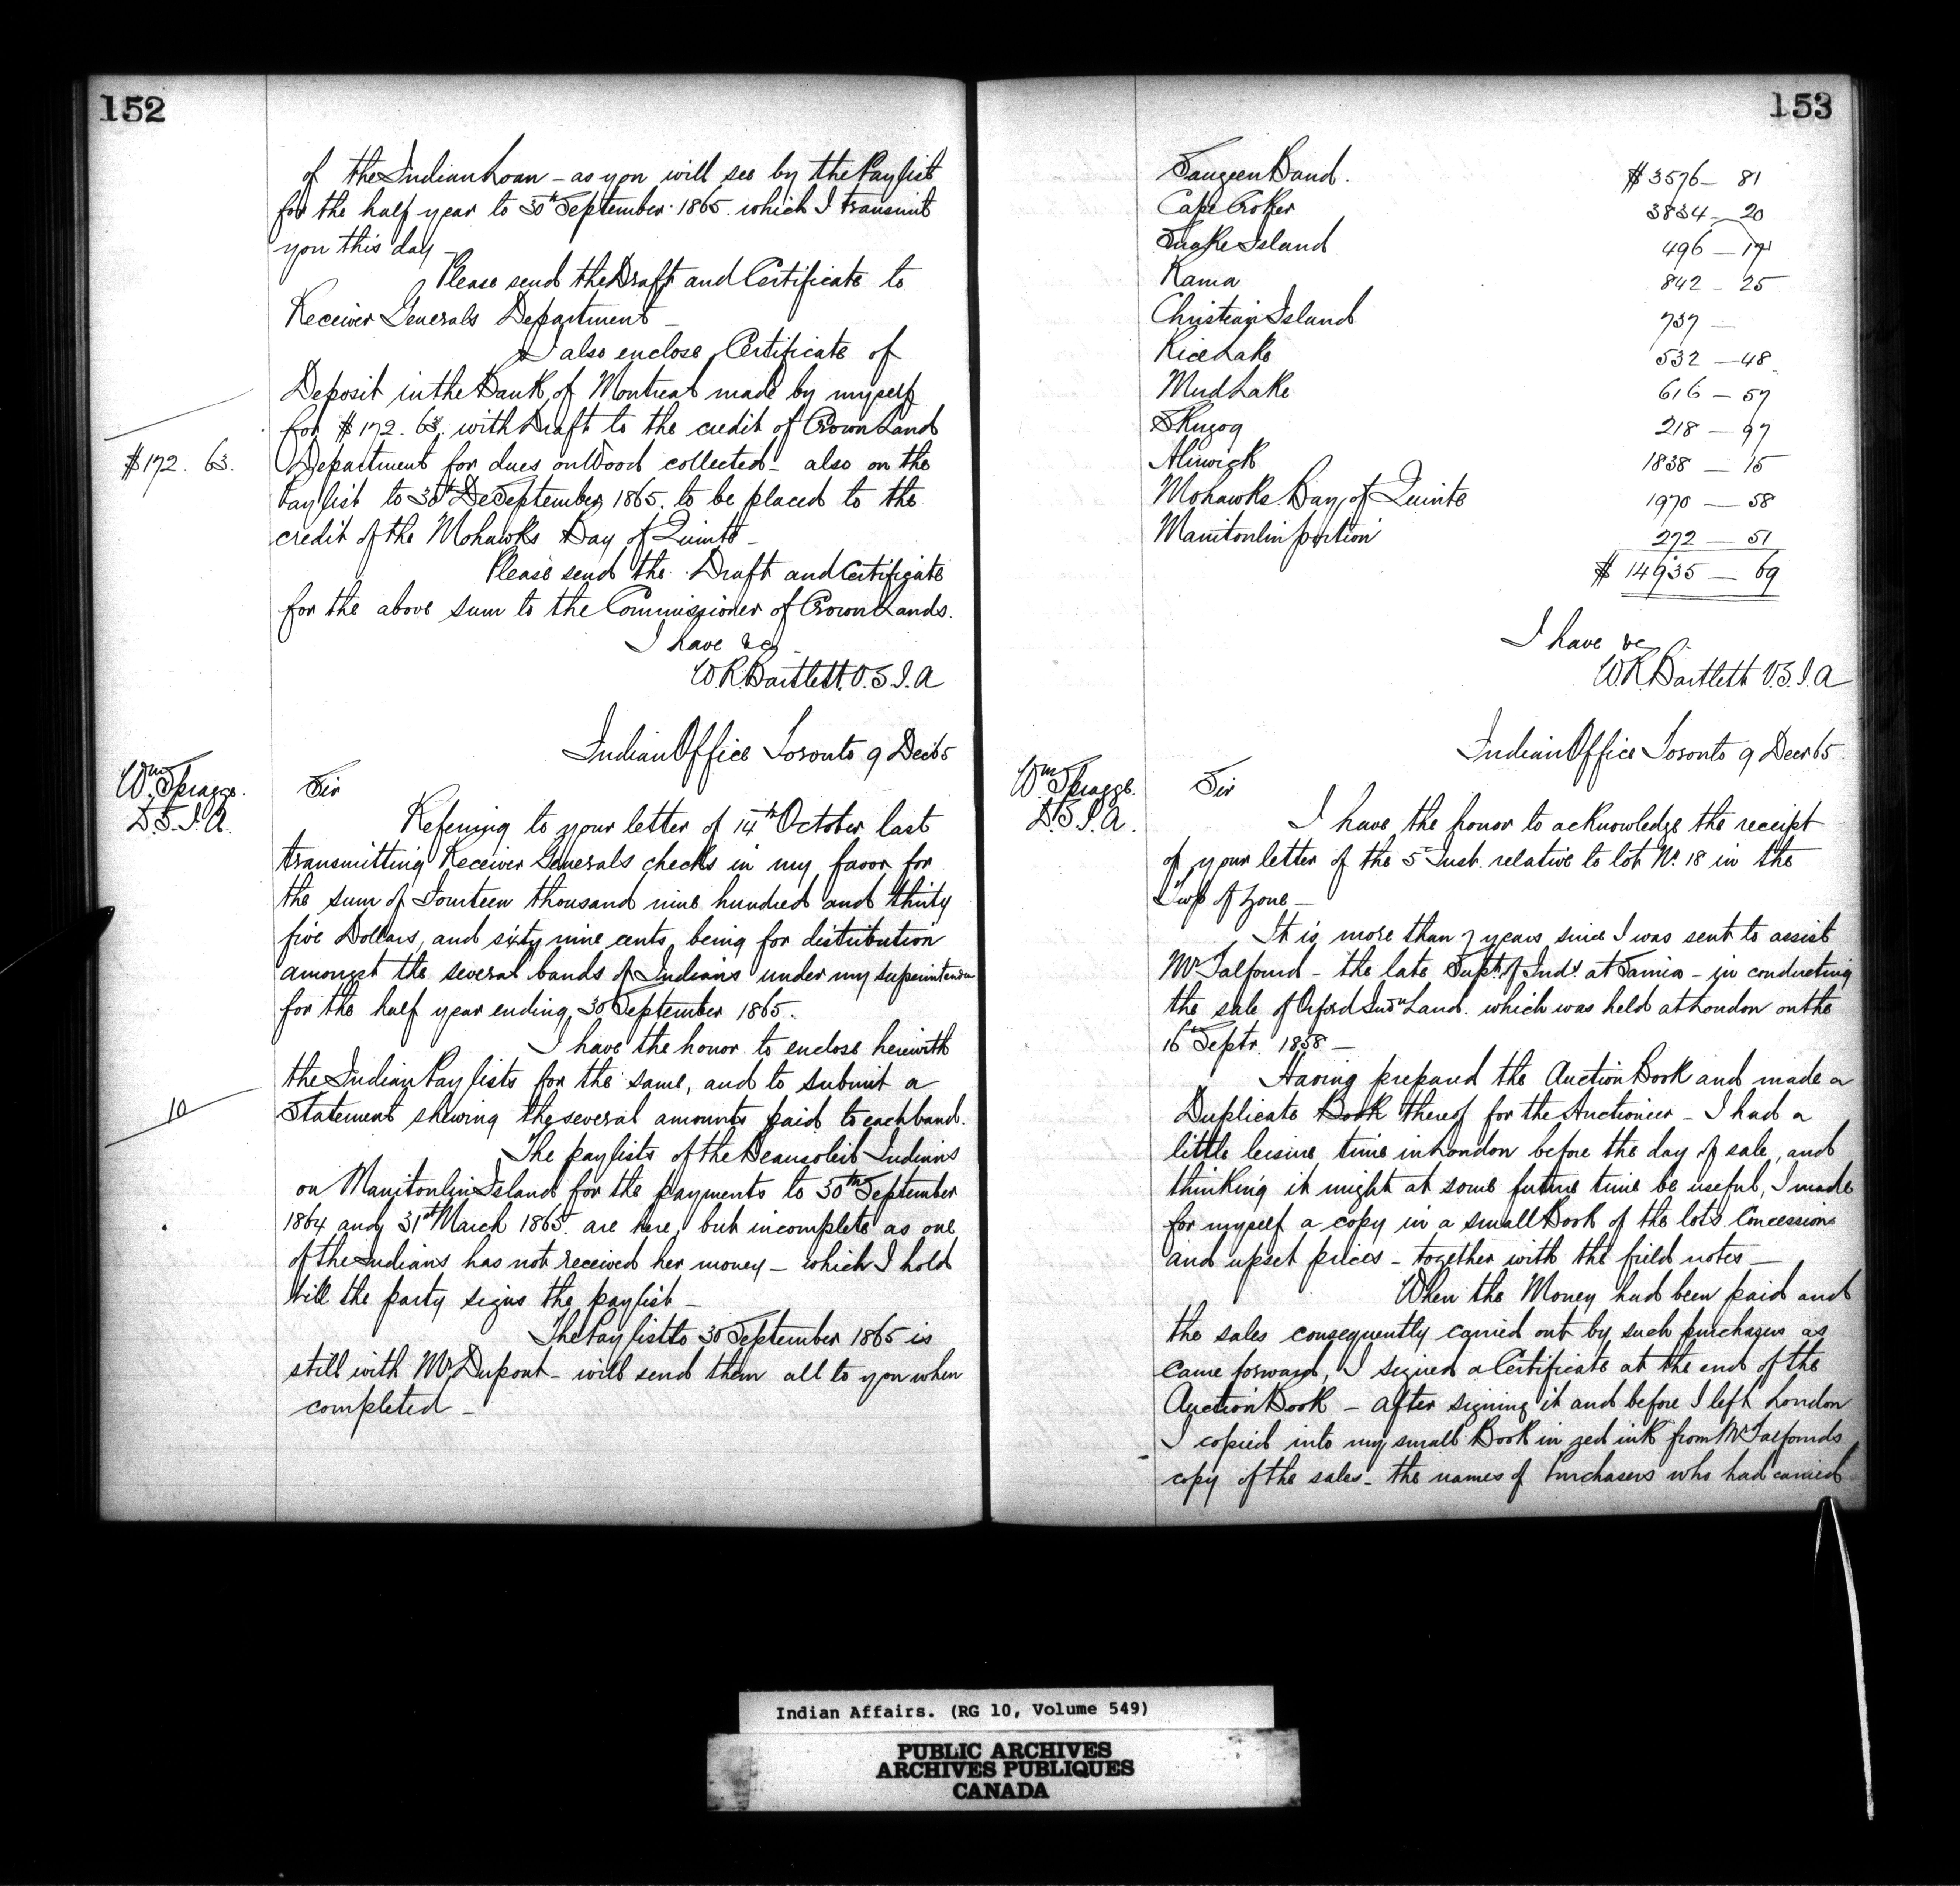 152
of the Indian Loan – as you will see by the Paylist
for the half year to 30th September 1865. which I transmit
you this day –
Please send the Draft and Certificate to
Receiver Generals Department –
I also enclose Certificate of
Deposit in the Bank of Montreal made by myself
for $172. 63. with Draft to the credit of Crown Land
$172. 63.
Department for dues on Wood collected – also on the
Paylist to 30th DeSeptember 1865. to be placed to the
credit of the Mohawks Bay of Quinte –
Please send the Draft and Certificate
for the above sum to the Commissioner of Crown Lands.
I have &c
W R Bartlett. V.S.I.A
Indian Office Toronto 9 Decr 65
Wm Spragge.
D.S.I.A.
Sir
Referring to your letter of 14th October last
transmitting Receiver Generals checks in my favor for
the sum of Fourteen thousand nine hundred and thirty
five Dollars, and sixty nine cents, being for distribution
amongst the several bands of Indians under my superintend
for the half year ending 30 September 1865.
I have the honor to enclose herewith
the Indian Pay lists for the same, and to submit a
10
Statement shewing the several amounts paid to each band.
The paylists of the Beausoleil Indians
on Manitoulin Island for the payments to 30th September
1864 and 31st March 1865. are here, but incomplete as one
of the Indians has not received her money – which I hold
till the party signs the paylist –
The Paylist to 30 September 1865 is
still with Mr Dupont – will send them all to you when
completed –
153
Saugeen Band. $3576 – 81
Cape Croker 3834 – 20
Snake Island 496 – 17
Rama 842 – 25
Christian Island 737 –
Rice Lake 532 – 48
Mud Lake 616 – 57
Skugog 218 – 97
Alnwick 1838 – 15
Mohawks Bay of Quinte 1970 – 58
Manitoulin portion 272 – 51
$ 14935 – 69
I have &c
W R Bartlett V.S.I.A
Indian Office Toronto 9 Decr 65.
Wm Spragge.
D.S.I.A.
Sir
I have the honor to acknowledge the receipt
of your letter of the 5th Inst. relative to lot No. 18 in the
Twp of Zone –
It is more than 7 years since I was sent to assist
Mr Talfourd – the late Supt. of Inds. at Sarnia – in conducting
the sale of Orford Indn Land. which was held at London on the
16th Septr. 1858 –
Having prepared the Auction Book and made a
Duplicate Book thereof for the Auctioneer – I had a
little leisure time in London before the day of sale, and
thinking it might at some future time be useful, I made
for myself a copy in a small Book of the lots Concessions
and upset prices – together with the field notes –
When the Money had been paid and
the sales consequently carried out by such purchasers as
came forward, I signed a Certificate at the end of the
Auction Book – after signing it and before I left London
I copied into my small Book in red ink from Mr Talfourds
copy of the sales – the names of Purchasers who had carried
Indian Affairs. (RG 10, Volume 549)
PUBLIC ARCHIVES
ARCHIVES PUBLIQUES
CANADA